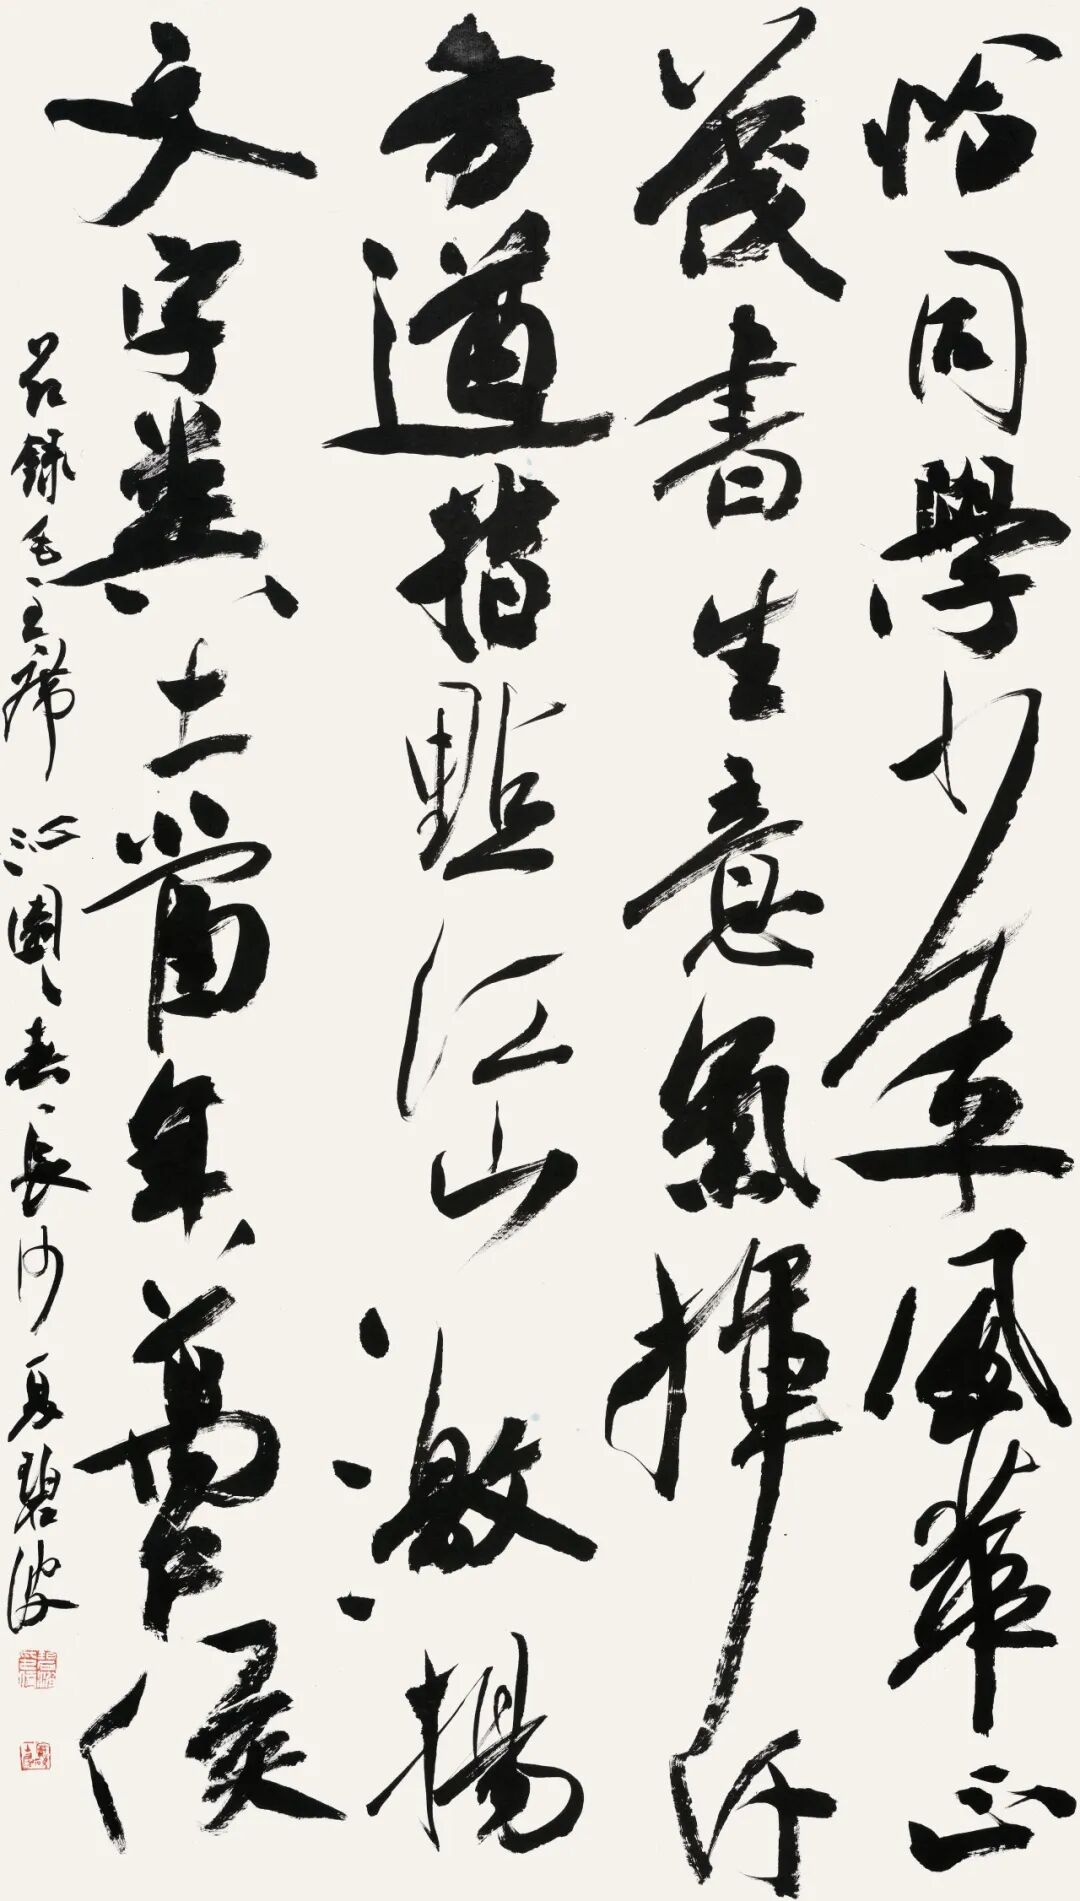 恰同學少年風華正
茂書生意氣揮斥
方遒指點江山激揚
文字糞土當年萬戶侯
节錄毛主席沁園春長沙夏碧波